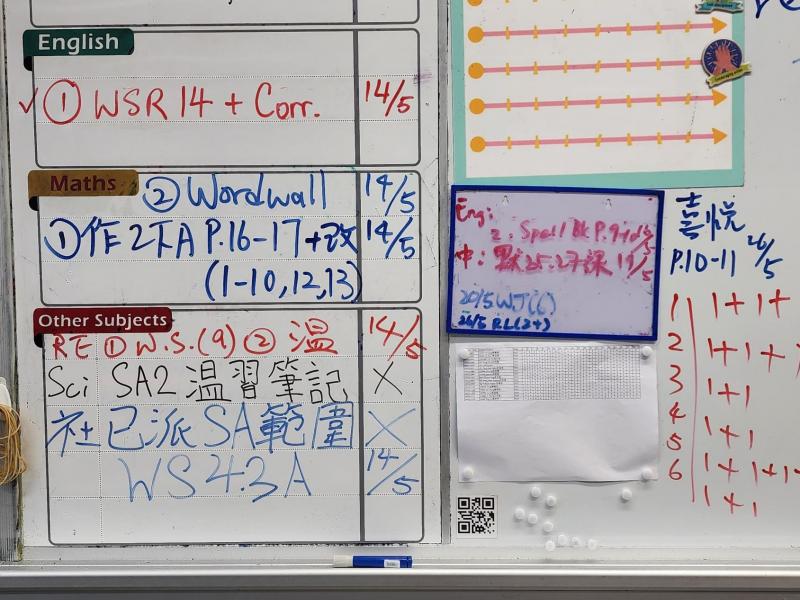 English
① WSR 14 + Corr. 14/5
Maths
② Wordwall 14/5
①作2下A P.16-17+改 14/5
(1-10,12,13)
Other Subjects
RE ① W.S.(9) ② 溫 14/5
Sci SA2 溫習筆記 X
社 已派SA範圍 X
WS4.3A 14/5
Eng:
2. Spell Bk P.9
中: 默25.27課 19/5
20/5 WJ
26/5 RL(2+)
喜悅
P.10-11 26/5
1 1+1+
2 1+1+1
3 1+1
4 1+1
5 1+1+1+
6 1+1